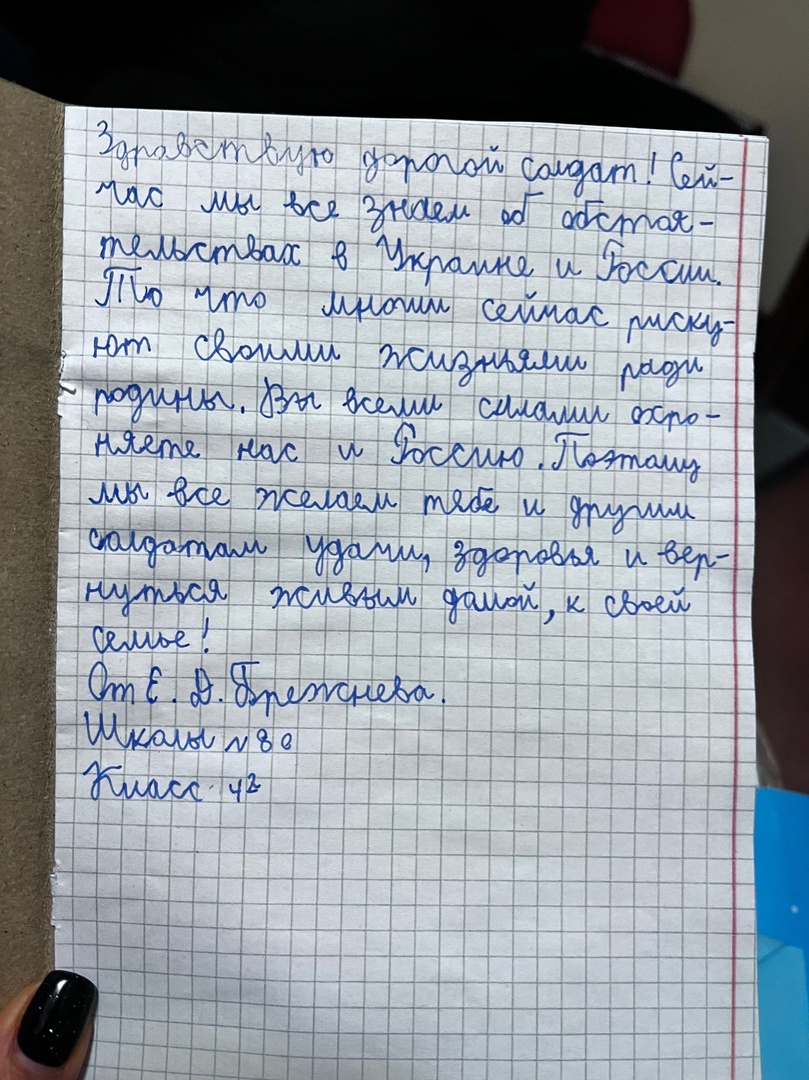 Здравствую дорогой солдат! Сей-
час мы все знаем об обстоя-
тельствах в Украине и России.
То что многии сейчас риску-
ют своими жизньями ради
родины. Вы всеми силами охро-
няете нас и Россию. Поэтому
мы все желаем тябе и другим
солдатам удачи, здоровья и вер-
нуться живым дамой, к своей
семье!
От Е. Д. Брежнева.
Школы №80
Класс 42